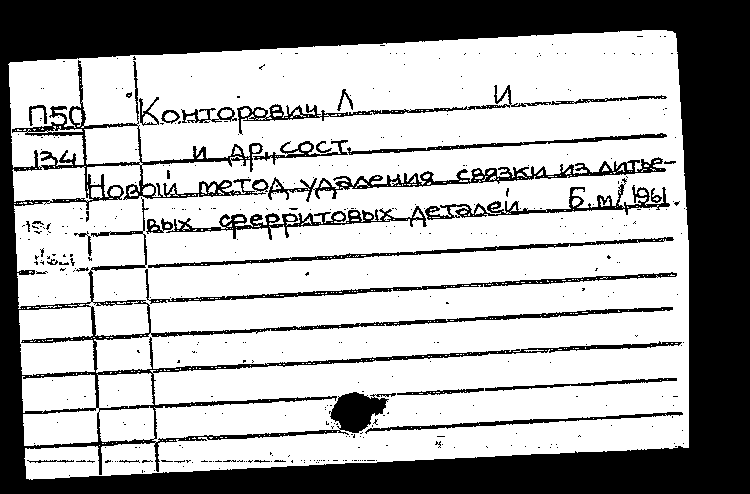 П50 Конторович, Л И
134 и др., сост.
Новый метод удаления связки из литье-
вых ферритовых деталей. Б.м., 1961.